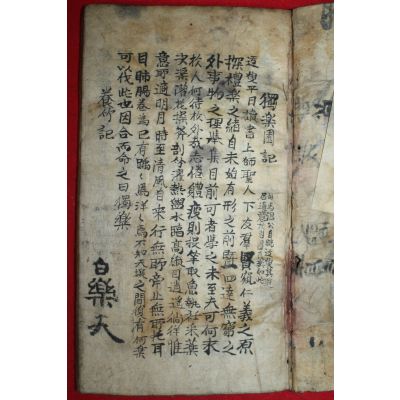 獨樂園記
迂叟平日讀書上師聖人下友羣賢窺仁義之原
探禮樂之緒自未始有形之前曁四達無窮之
外事物之理擧集目前可者學之未至夫可何求
於人何待於外哉志倦體疲則投竿取魚執衽采藥
決渠灌花操斧剖竹濯熱盥水臨高縱目逍遙徜徉惟
意所適明月時至清風自來行無所牽止無所柅耳
目肺腸卷爲己有踽踽焉洋洋焉不知天壤之間復有何樂
可以代此也因合而命之曰獨樂
養竹記
白樂天